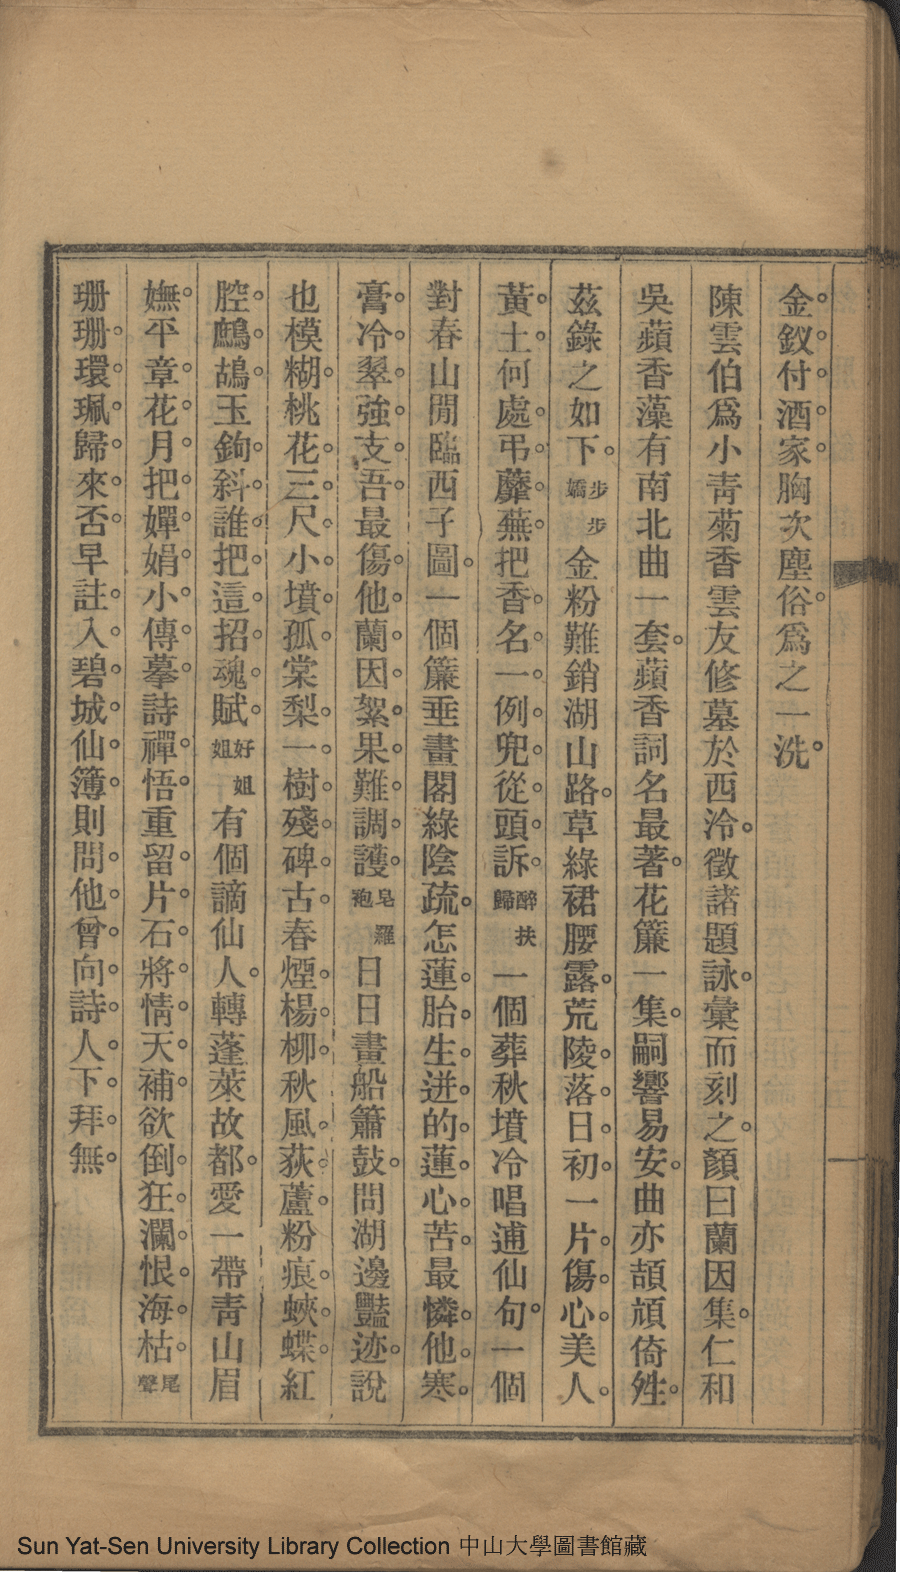 金釵付酒家胸次塵俗爲之一洗。
陳雲伯爲小青菊香雲友修墓於西泠。徵諸題詠。彙而刻之。顏曰蘭因集。仁和
吳蘋香藻有南北曲一套。蘋香詞名最著。花簾一集。嗣響易安。曲亦頡頏倚姓。
茲錄之如下。步步嬌金粉難銷湖山路。草綠裙腰露。荒陵落日初。一片傷心美人
黃土。何處弔蘼蕪。把香名一例兜。從頭訴。醉扶歸一個葬秋墳冷唱逋仙句。一個
對春山閒臨西子圖。一個簾垂畫閣綠陰疏。怎蓮胎生迸的蓮心苦。最憐他寒
膏冷翠強支吾。最傷他蘭因絮果難調護。皂羅袍日日畫船簫鼓。問湖邊豔迹。說
也模糊。桃花三尺小墳孤。棠梨一樹殘碑古。春煙楊柳。秋風荻蘆。粉痕蛺蝶。紅
腔鷓鴣。玉鉤斜誰把這招魂賦。好姐姐有個謫仙人。轉蓬萊故都。愛一帶青山眉
嫵。平章花月。把嬋娟小傳摹。詩禪悟。重留片石將情天補。欲倒狂瀾恨海枯。尾聲
珊珊環珮歸來否。早註入碧城仙簿。則問他曾向詩人下拜無。
Sun Yat-Sen University Library Collection 中山大學圖書館藏